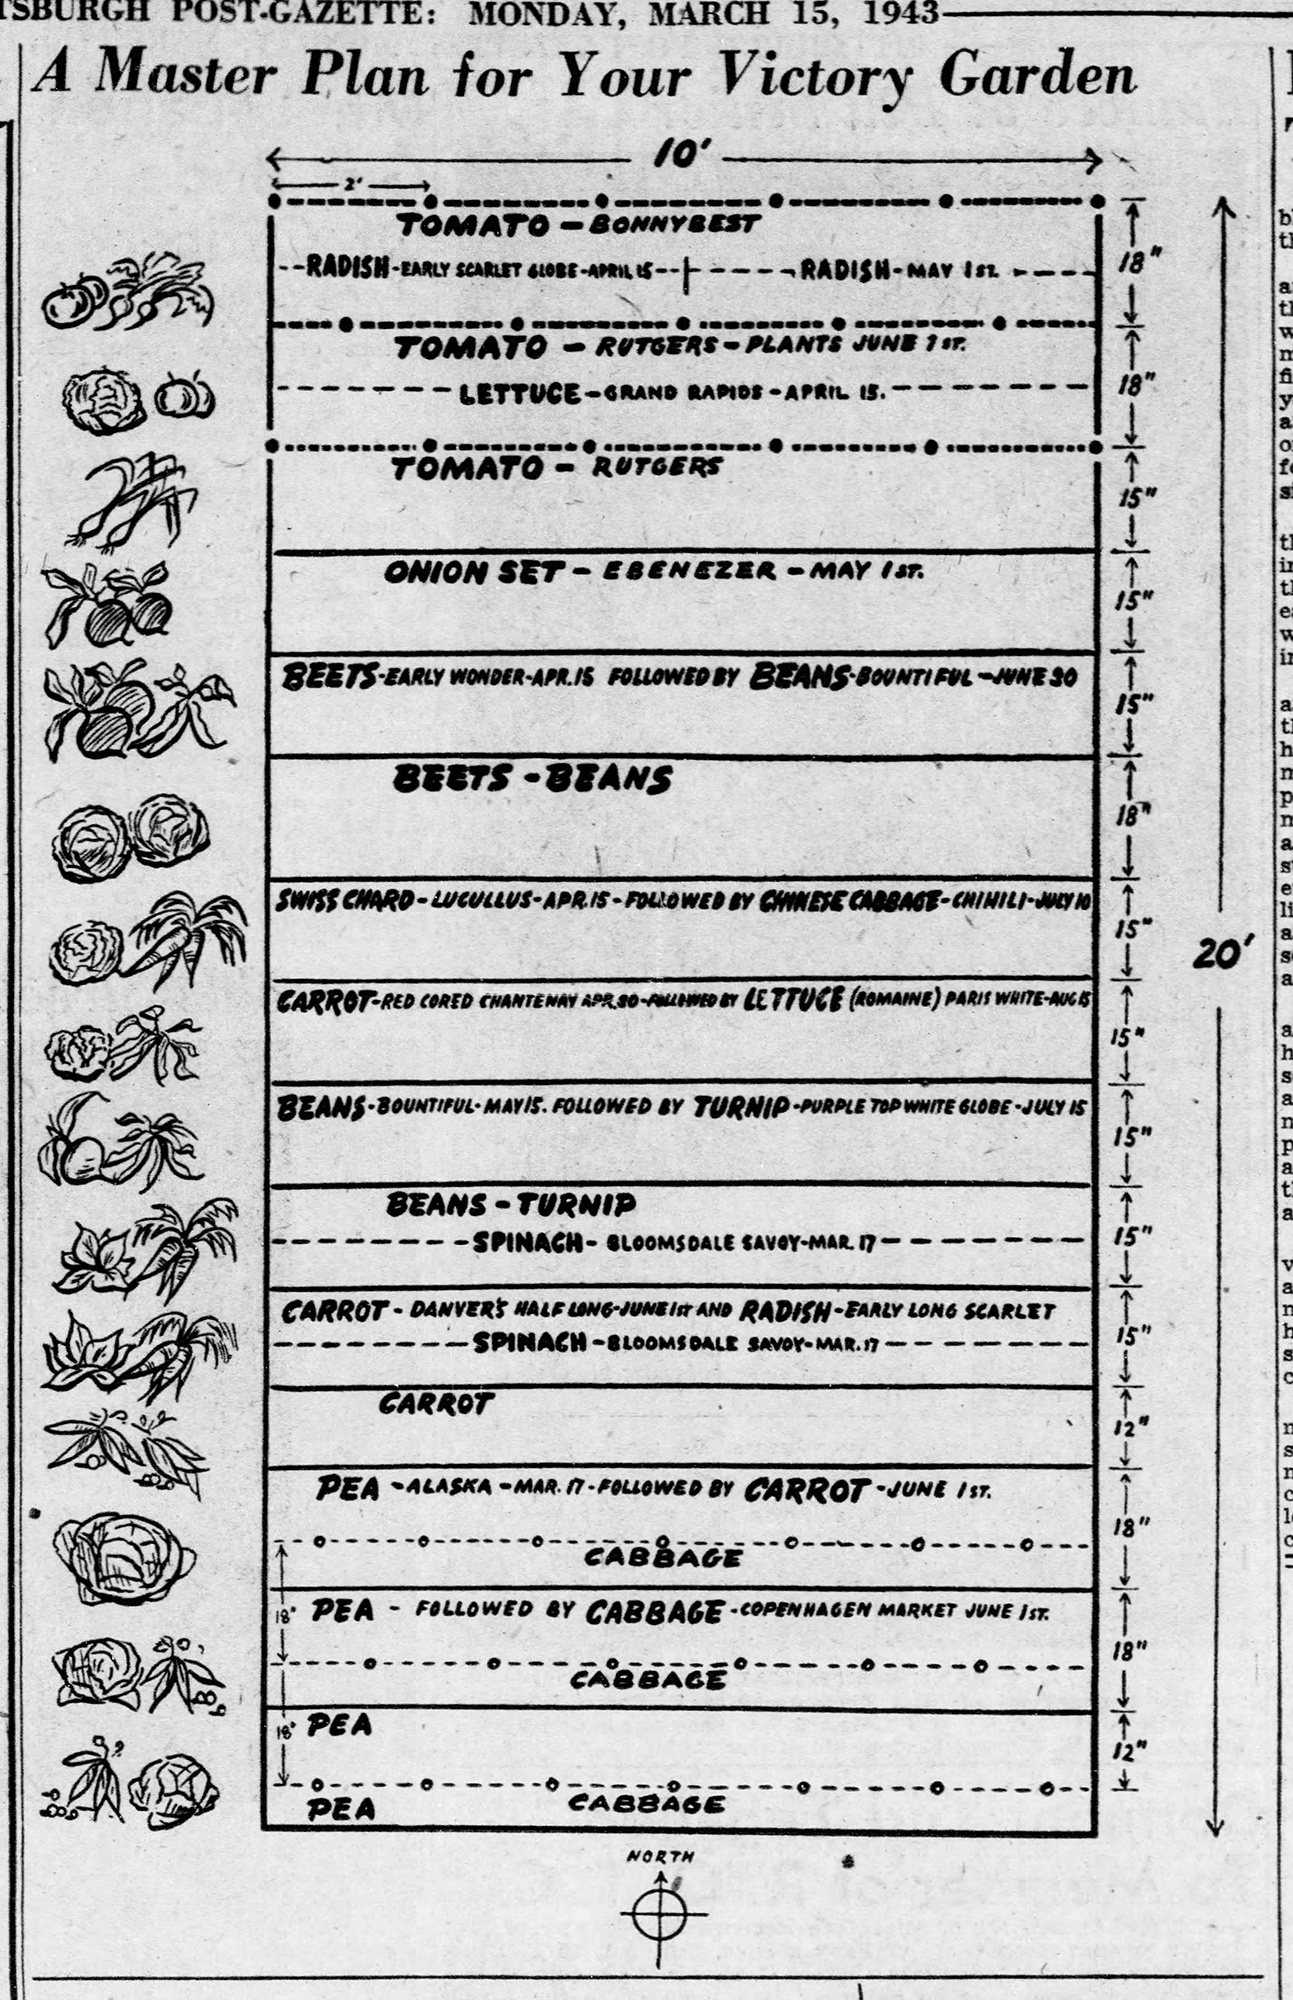 TSBURGH POST-GAZETTE: MONDAY, MARCH 15, 1943
A Master Plan for Your Victory Garden
10'
2'
TOMATO - BONNYBEST
--RADISH-EARLY SCARLET GLOBE-APRIL 15-- RADISH-MAY 1ST.
18"
TOMATO - RUTGERS - PLANTS JUNE 1ST.
LETTUCE - GRAND RAPIDS - APRIL 15.
18"
TOMATO - RUTGERS
15"
ONION SET - EBENEZER - MAY 1ST.
15"
BEETS-EARLY WONDER-APR.15 FOLLOWED BY BEANS-BOUNTIFUL-JUNE 30
15"
BEETS - BEANS
18"
SWISS CHARD-LUCULLUS-APR.15-FOLLOWED BY CHINESE CABBAGE-CHIHILI-JULY 10
15"
20'
CARROT-RED CORED CHANTENAY APR.30-FOLLOWED BY LETTUCE (ROMAINE) PARIS WHITE-AUG 15
15"
BEANS-BOUNTIFUL-MAY 15. FOLLOWED BY TURNIP-PURPLE TOP WHITE GLOBE-JULY 15
15"
BEANS - TURNIP
SPINACH - BLOOMSDALE SAVOY-MAR. 17
15"
CARROT - DANVER'S HALF LONG-JUNE 1ST AND RADISH-EARLY LONG SCARLET
SPINACH - BLOOMSDALE SAVOY-MAR. 17
15"
CARROT
12"
PEA - ALASKA - MAR. 17 - FOLLOWED BY CARROT - JUNE 1ST.
18"
CABBAGE
18" PEA - FOLLOWED BY CABBAGE - COPENHAGEN MARKET JUNE 1ST.
18"
CABBAGE
18" PEA
12"
CABBAGE
PEA
NORTH